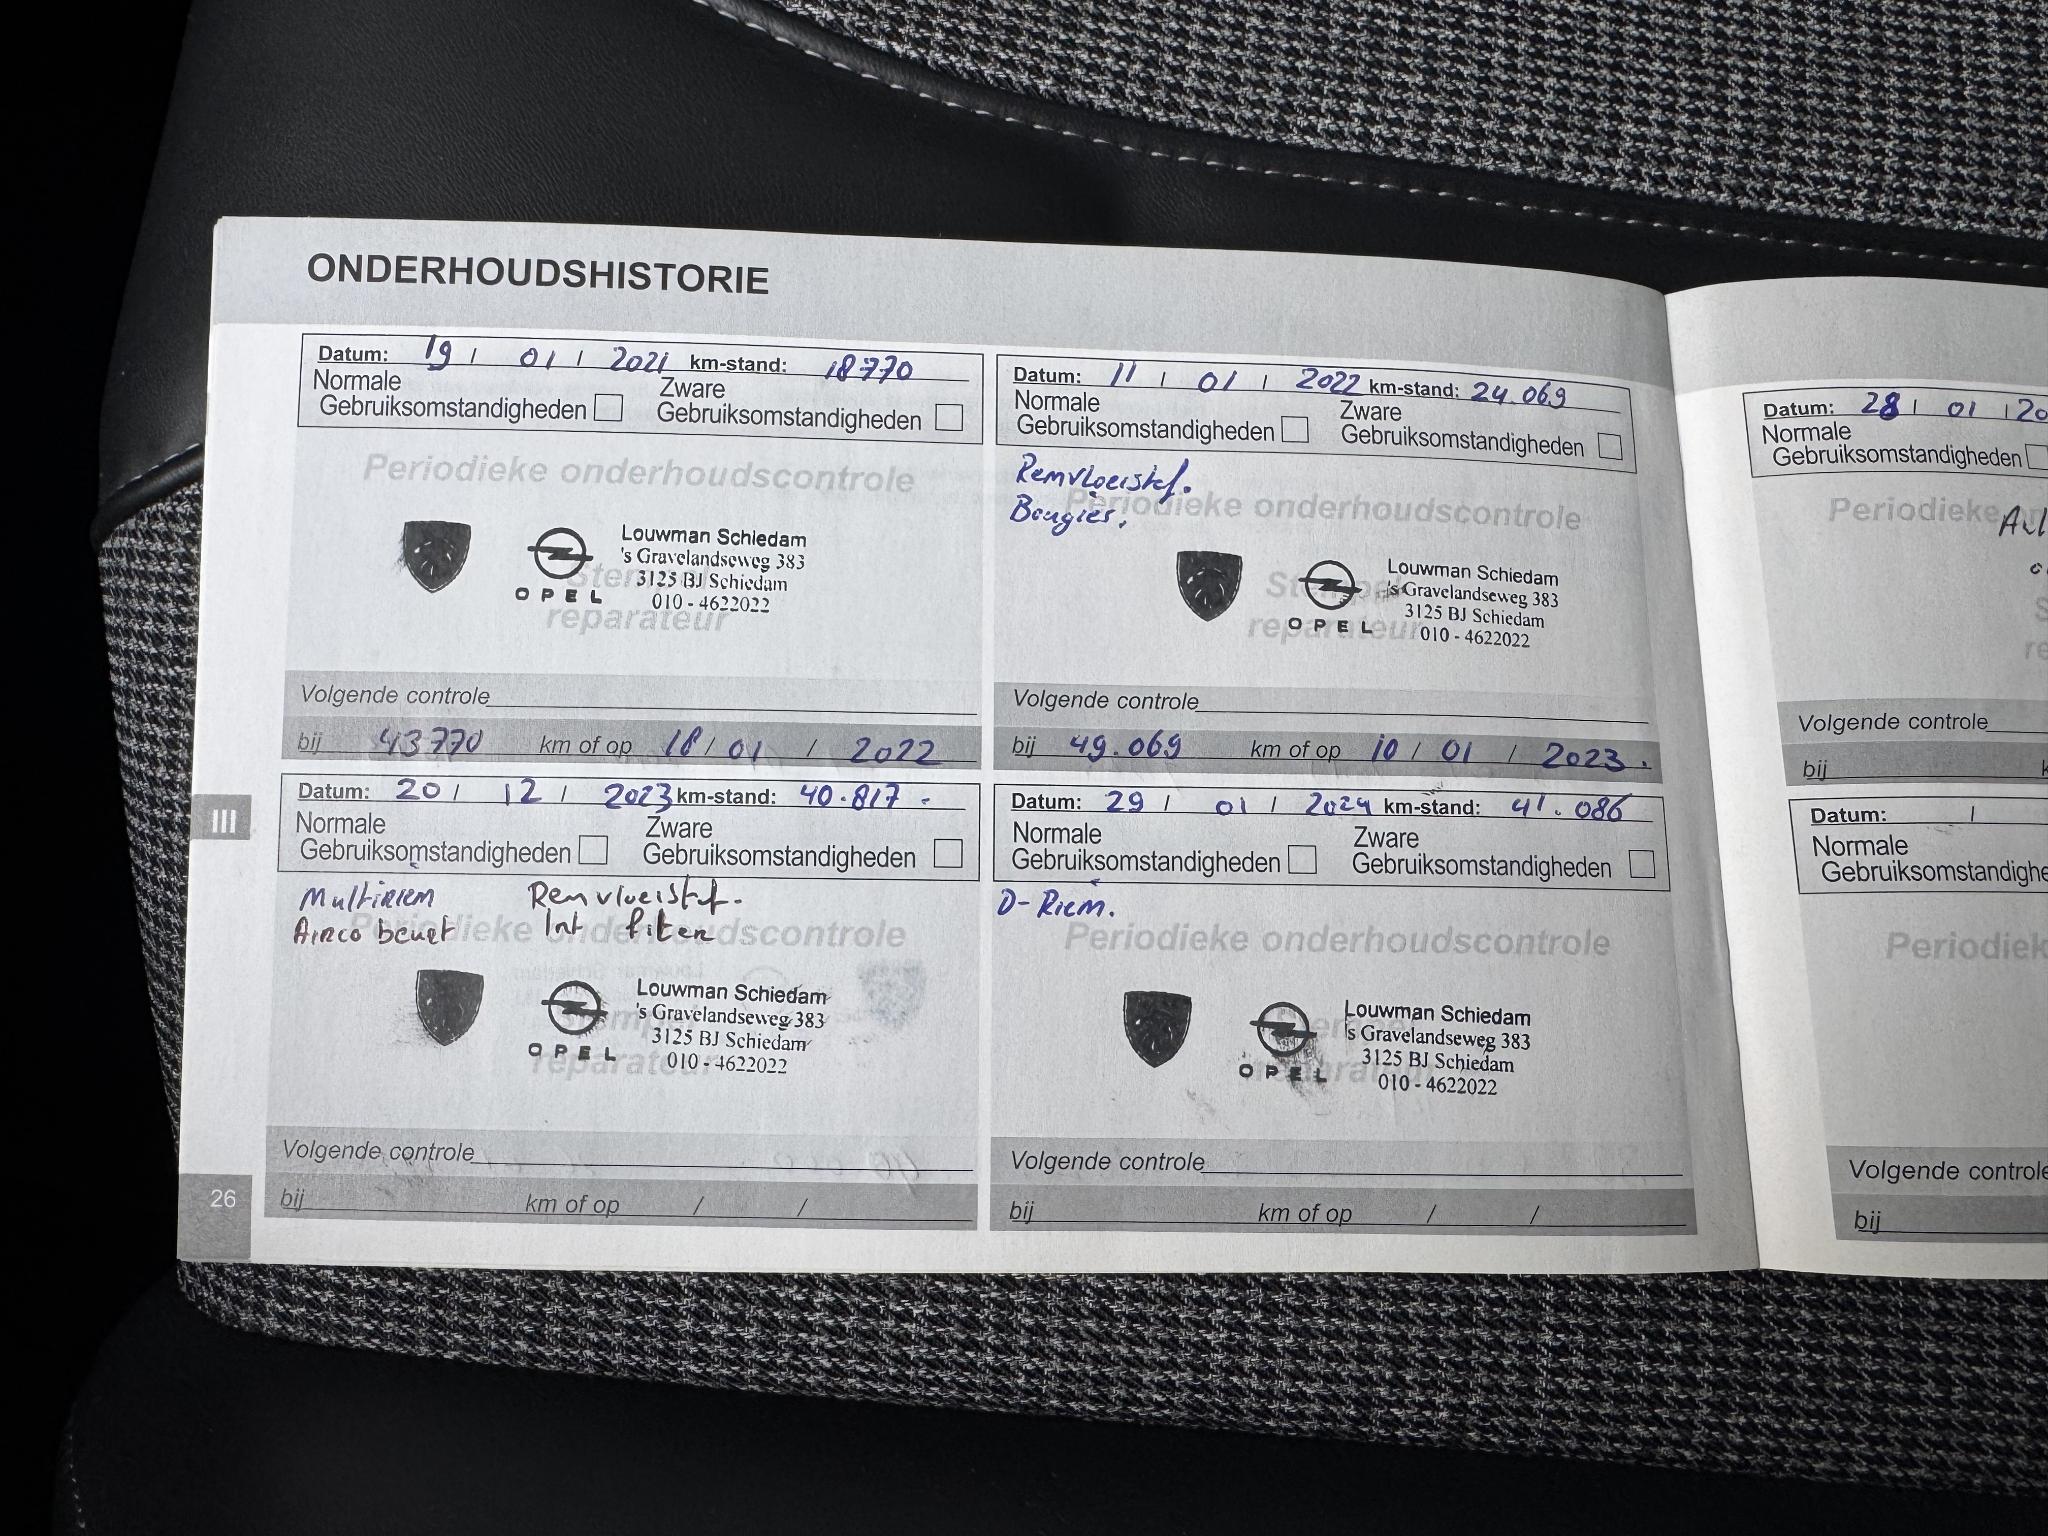 ONDERHOUDSHISTORIE
Datum: 19 / 01 / 2021 km-stand: 18770
Normale Zware
Gebruiksomstandigheden Gebruiksomstandigheden
Periodieke onderhoudscontrole
Stempel
reparateur
OPEL
Louwman Schiedam
's Gravelandseweg 383
3125 BJ Schiedam
010 - 4622022
Volgende controle
bij 43770 km of op 18 / 01 / 2022
Datum: 11 / 01 / 2022 km-stand: 24.069
Normale Zware
Gebruiksomstandigheden Gebruiksomstandigheden
Remvloeistof.
Bougies.
Periodieke onderhoudscontrole
Stempel
reparateur
OPEL
Louwman Schiedam
's Gravelandseweg 383
3125 BJ Schiedam
010 - 4622022
Volgende controle
bij 49.069 km of op 10 / 01 / 2023.
Datum: 20 / 12 / 2023 km-stand: 40.817-
Normale Zware
Gebruiksomstandigheden Gebruiksomstandigheden
Multiriem Remvloeistof.
Airco beurt Int filter
Periodieke onderhoudscontrole
Stempel
reparateur
OPEL
Louwman Schiedam
's Gravelandseweg 383
3125 BJ Schiedam
010 - 4622022
Volgende controle
bij km of op / /
Datum: 29 / 01 / 2024 km-stand: 41.086
Normale Zware
Gebruiksomstandigheden Gebruiksomstandigheden
D-Riem.
Periodieke onderhoudscontrole
Stempel
reparateur
OPEL
Louwman Schiedam
's Gravelandseweg 383
3125 BJ Schiedam
010 - 4622022
Volgende controle
bij km of op / /
III
26
Datum: 28 / 01 / 20
Normale
Gebruiksomstandigheden
Periodieke
Volgende controle
bij
Datum: /
Normale
Gebruiksomstandighe
Periodiek
Volgende controle
bij